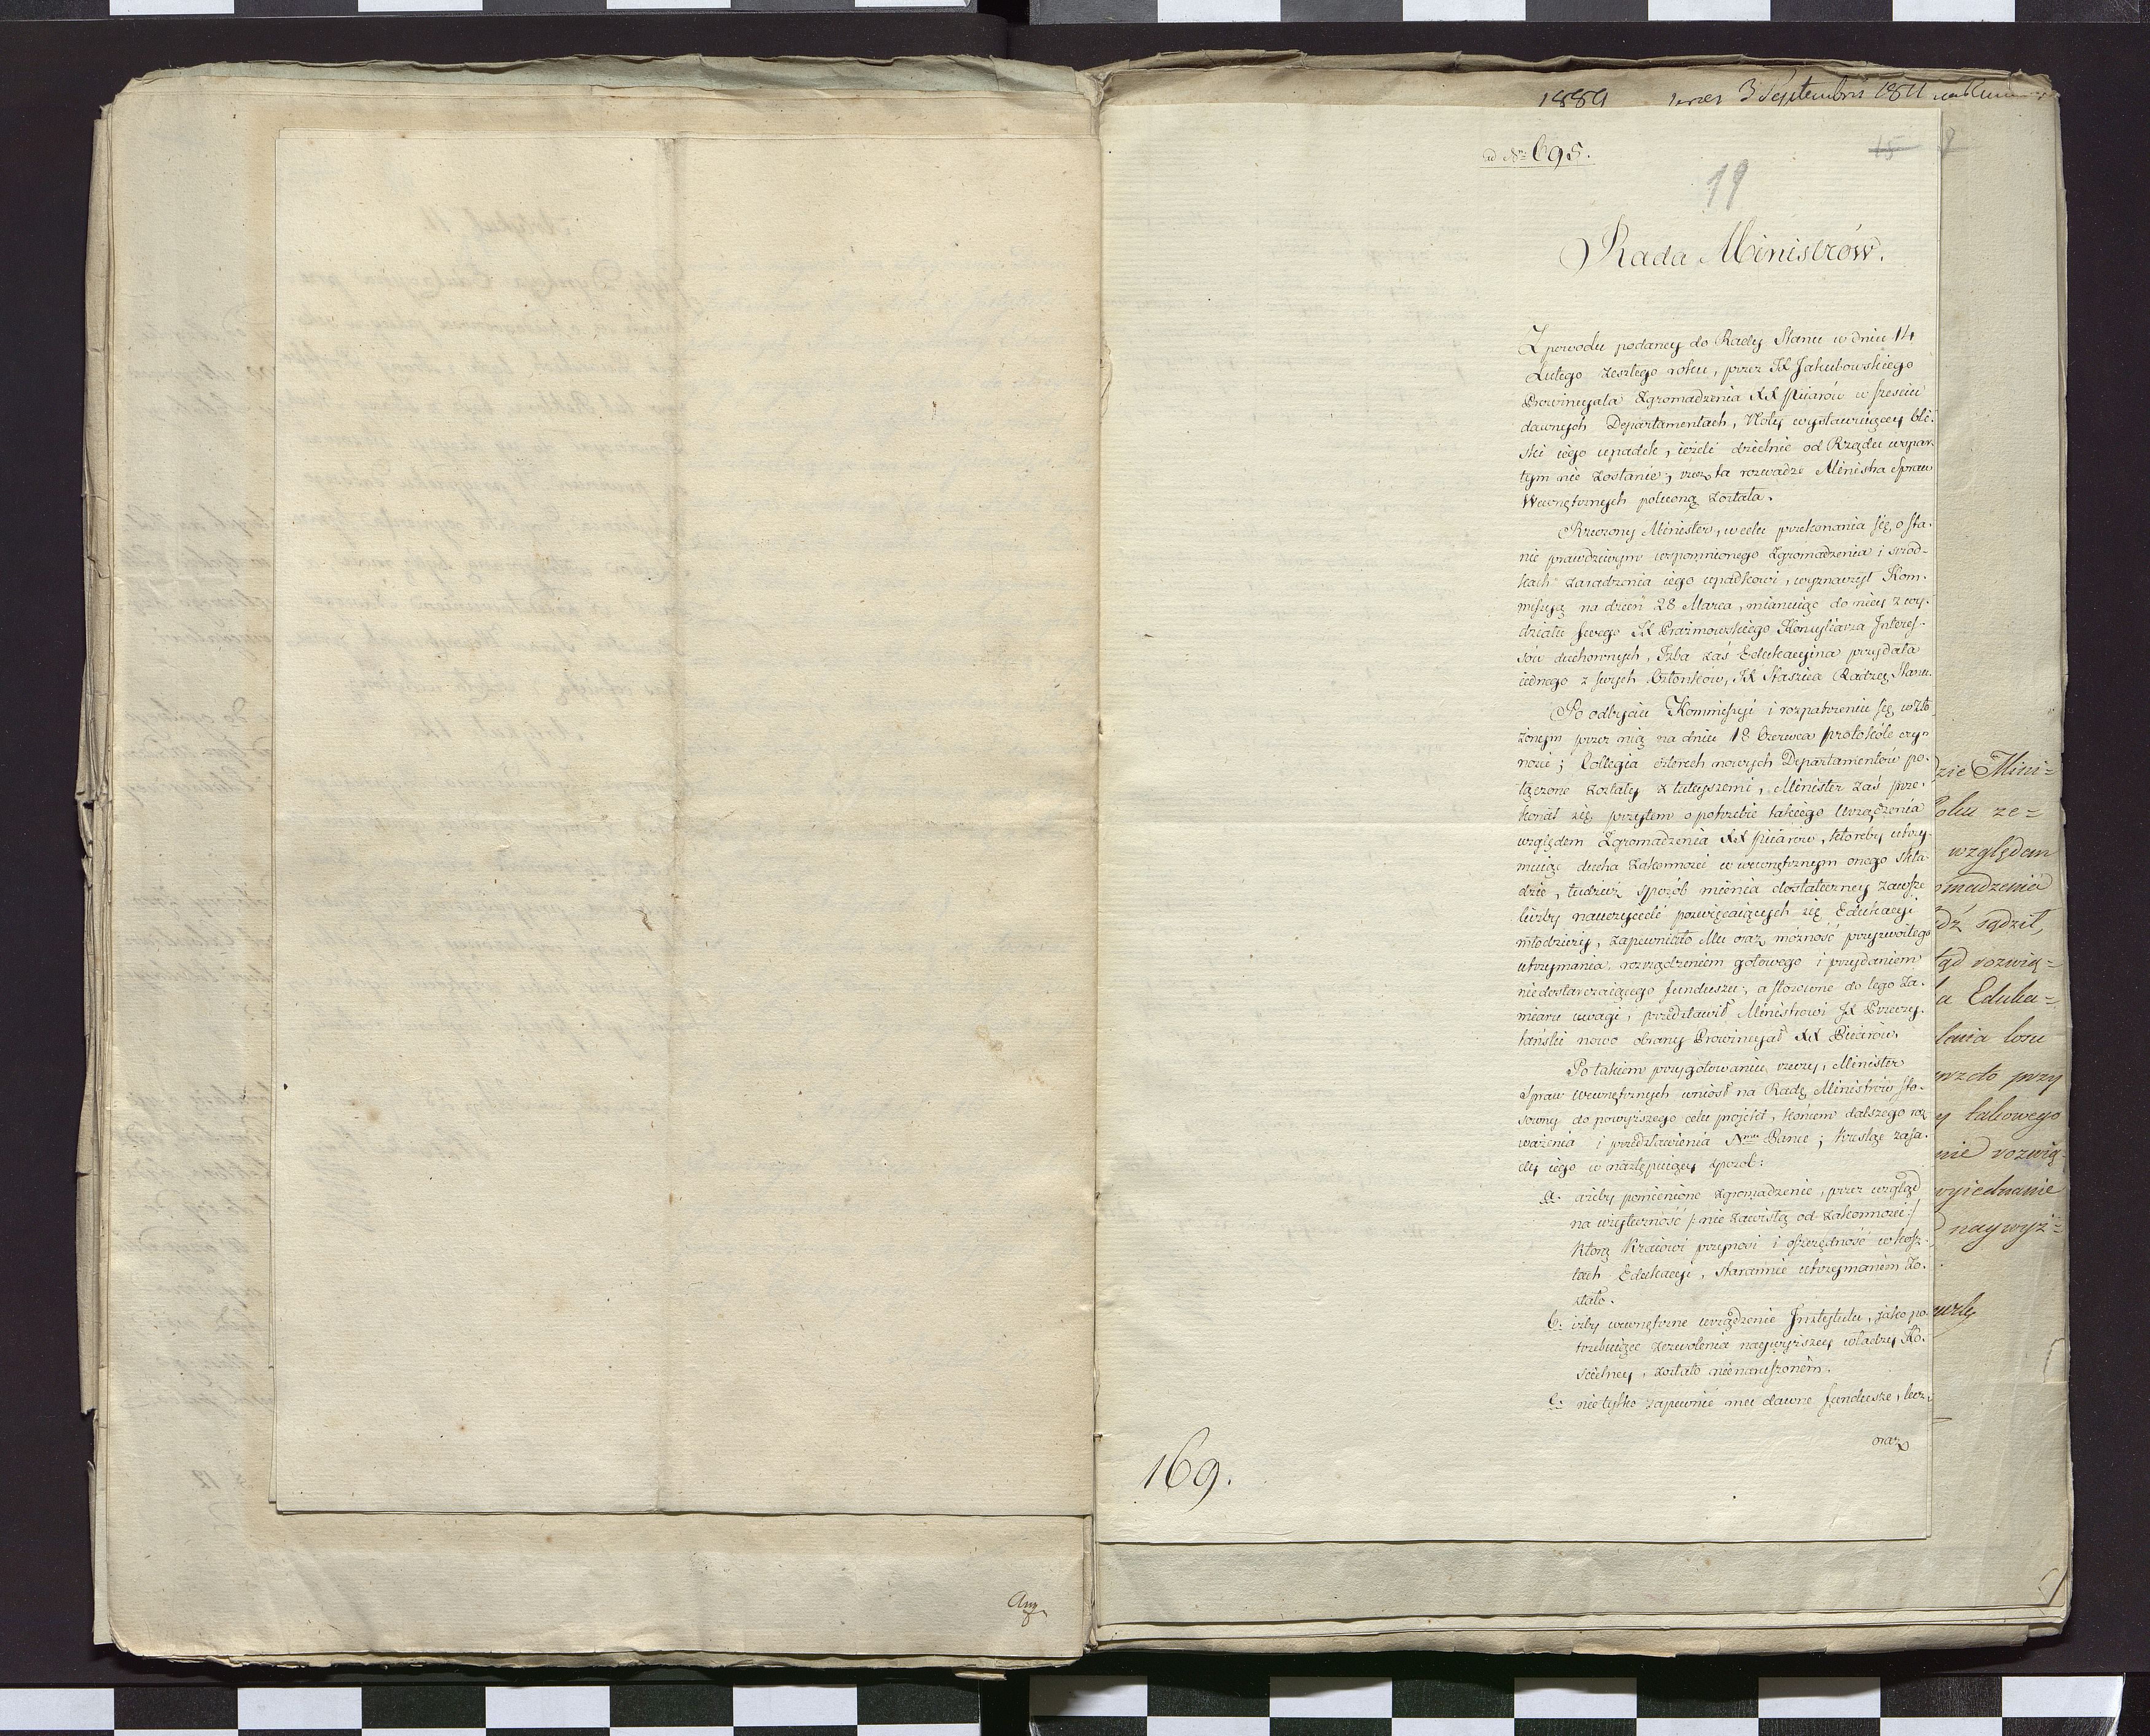 3 Septembris 1811
ad Nrm 695.
15
19
Rada Ministrów.
Z powodu podaney do Rady Stanu w dniu 14
Lutego zeszłego roku, przez JX Jakubowskiego
Prowincyała Zgromadzenia XX Piiarów w sześciu
dawnych Departamentach, Noty wystawuiącey bli-
ski iego upadek, ieżeli dzielnie od Rządu wspar-
tym nie zostanie; rzecz ta rozwadze Ministra Spraw
Wewnętrznych poleconą została.
Rzeczony Minister, w celu przekonania się, o sta-
nie prawdziwym wspomnionego Zgromadzenia i srod-
kach zaradzenia iego upadkowi, wyznaczył Kom-
missyą na dzień 28 Marca, mianuiąc do niey z wy-
działu swego JX Prażmowskiego Konsyliarza Interes-
sów duchownych, Izba zaś Edukacyina przydała
iednego z swych Członków, JX Staszica Radzcę Stanu.
Po odbyciu Kommissyi i rozpatrzeniu się w zło-
żonym przez nią na dniu 18 Czerwca protokóle czyn-
nosci; Collegia czterech nowych Departamentów po-
łączone zostały z tuteyszemi, Minister zaś prze-
konał się przytem o potrzebie takiego Urządzenia
względem Zgromadzenia XX Piiarów, któreby utrzy-
muiąc ducha zakonnosci w wewnętrznym onego skła-
dzie, tudzież sposób mienia dostateczney zawsze
liczby nauczycieli poswięcaiących się Edukacyi
młodzieży, zapewniało Mu oraz możność przyzwoitego
utrzymania, rozrządzeniem gotowego i przydaniem
niedostarczaiącego funduszu; a stosowne do tego Za-
miaru uwagi, przedstawił Ministrowi JX Przeczy-
tański nowo obrany Prowincyał XX Piiarów.
Po takiem przygotowaniu rzeczy, Minister
Spraw Wewnętrznych wniosł na Radę Ministrów sto-
sowny do powyższego celu projekt, końcem dalszego roz-
ważenia i przedstawienia Nmu Panu; kresląc zasa-
dy iego w następuiący sposob:
a. ażeby pomienione Zgromadzenie, przez wzgląd
na użyteczność /: nie zawisłą od zakonnosci :/
którą Kraiowi przynosi i oszczędność w kosz-
tach Edukacyi, starannie utrzymaniem zo-
stało.
b. iżby wewnętrzne urządzenie Instytutu, jako po-
trzebuiące zezwolenia naywyższey władzy Ko-
scielney, zostało nienaruszonem.
c. nie tylko zapewnić mu dawne fundusze, lecz
oraz
169.
względem
sądził,
losu
przeto przy
takowego